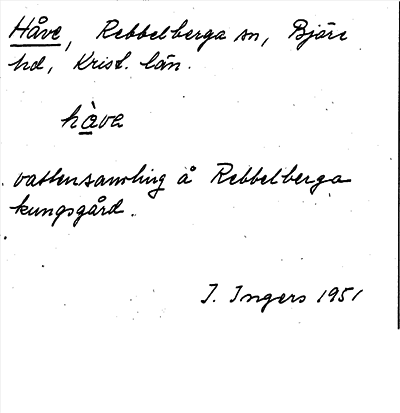 Håve, Rebbelberga sn, Bjäre
hd, Krist. län.
hàva
vattensamling å Rebbelberga
kungsgård.
I. Ingers 1951